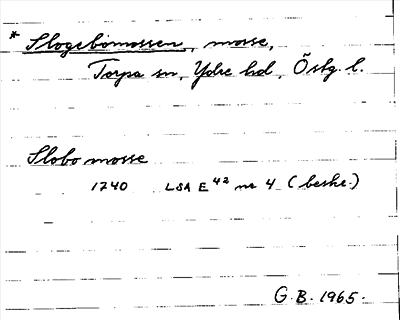 * Slogebomossen, mosse,
Torpa sn, Ydre hd, Östg. l.
Slobo mosse
1740 LSA E 42 nr 4 (beskr.)
G.B. 1965.